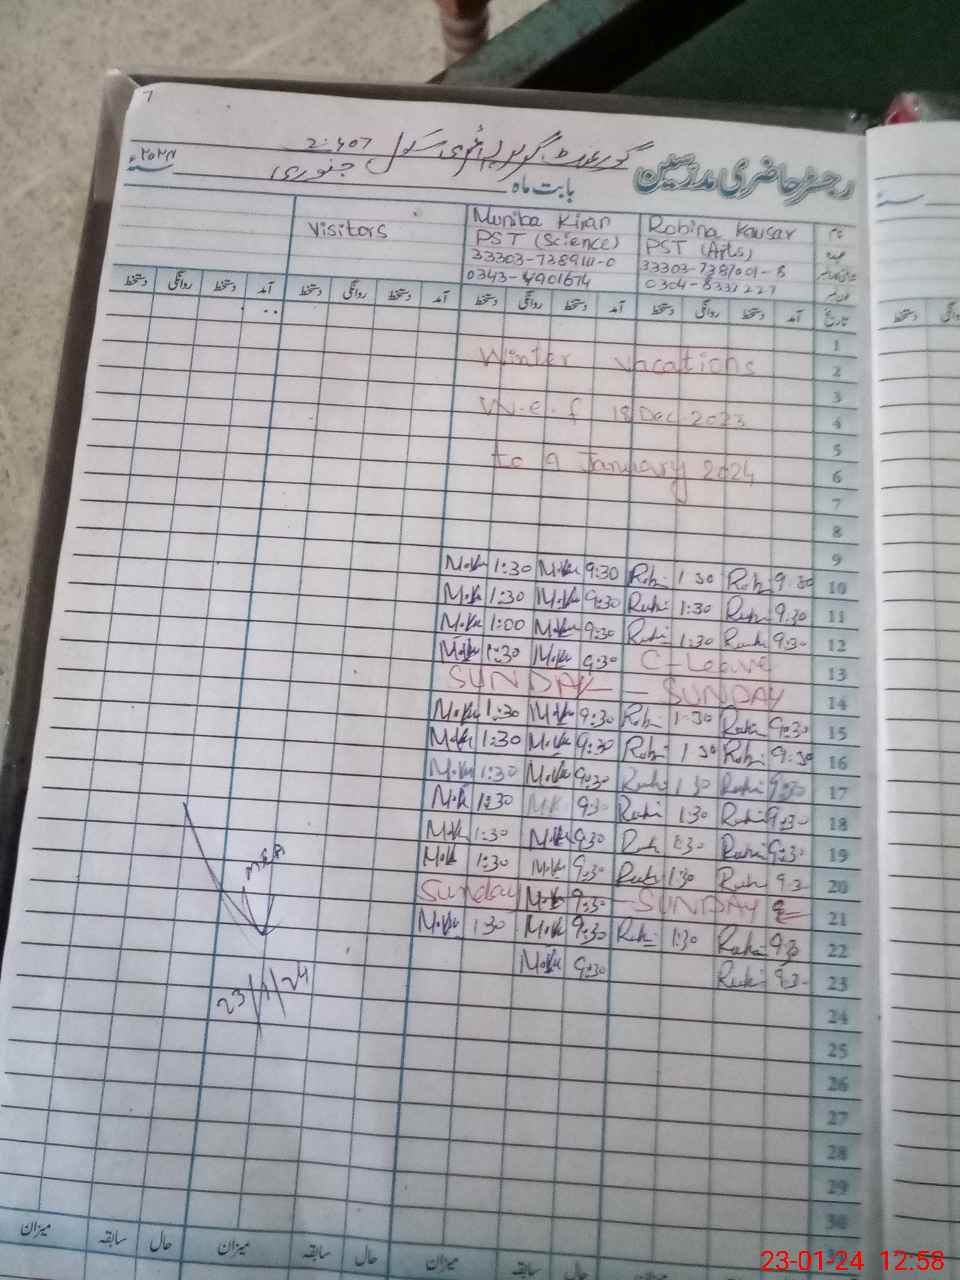 7
2-407
گورنمنٹ گرلز پرائمری سکول
رجسٹر حاضری مدرسین
بابت ماہ جنوری ۲۰۲۴ سنہ
Visitors Muniba Kiran Robina Kausar نام
PST (Science) PST (Arts) عہدہ
33303-
0343-4901674 0304-8331227
دستخط روانگی دستخط آمد دستخط روانگی دستخط آمد دستخط روانگی دستخط آمد دستخط روانگی دستخط آمد تاریخ
1
Winter vacations 2
3
W.e.f 18 Dec-2023 4
5
to 9 January 2024 6
7
8
9
M.K 1:30 M.K 9:30 Rubi 1:30 Rubi 9:30 10
M.K 1:30 M.K 9:30 Rubi 1:30 Rubi 9:30 11
M.K 1:00 M.K 9:30 Rubi 1:30 Rubi 9:30 12
M.K 1:30 M.K 9:30 C-Leave 13
SUNDAY - SUNDAY 14
M.K 1:30 M.K 9:30 Rubi 1:30 Rubi 9:30 15
M.K 1:30 M.K 9:30 Rubi 1:30 Rubi 9:30 16
M.K 1:30 M.K 9:30 Rubi 1:30 Rubi 9:30 17
M.K 1:30 M.K 9:30 Rubi 1:30 Rubi 9:30 18
M.K 1:30 M.K 9:30 Rubi 1:30 Rubi 9:30 19
M.K 1:30 M.K 9:30 Rubi 1:30 Rubi 9:30 20
Sunday M.K 9:30 - SUNDAY 21
M.K 1:30 M.K 9:30 Rubi 1:30 Rubi 9:30 22
M.K 9:30 Rubi 9:30 23
23/1/24
24
25
26
27
28
29
30
میزان سابقہ حال میزان سابقہ حال میزان سابقہ حال میزان
دستخط روانگی
23-01-24 12:58